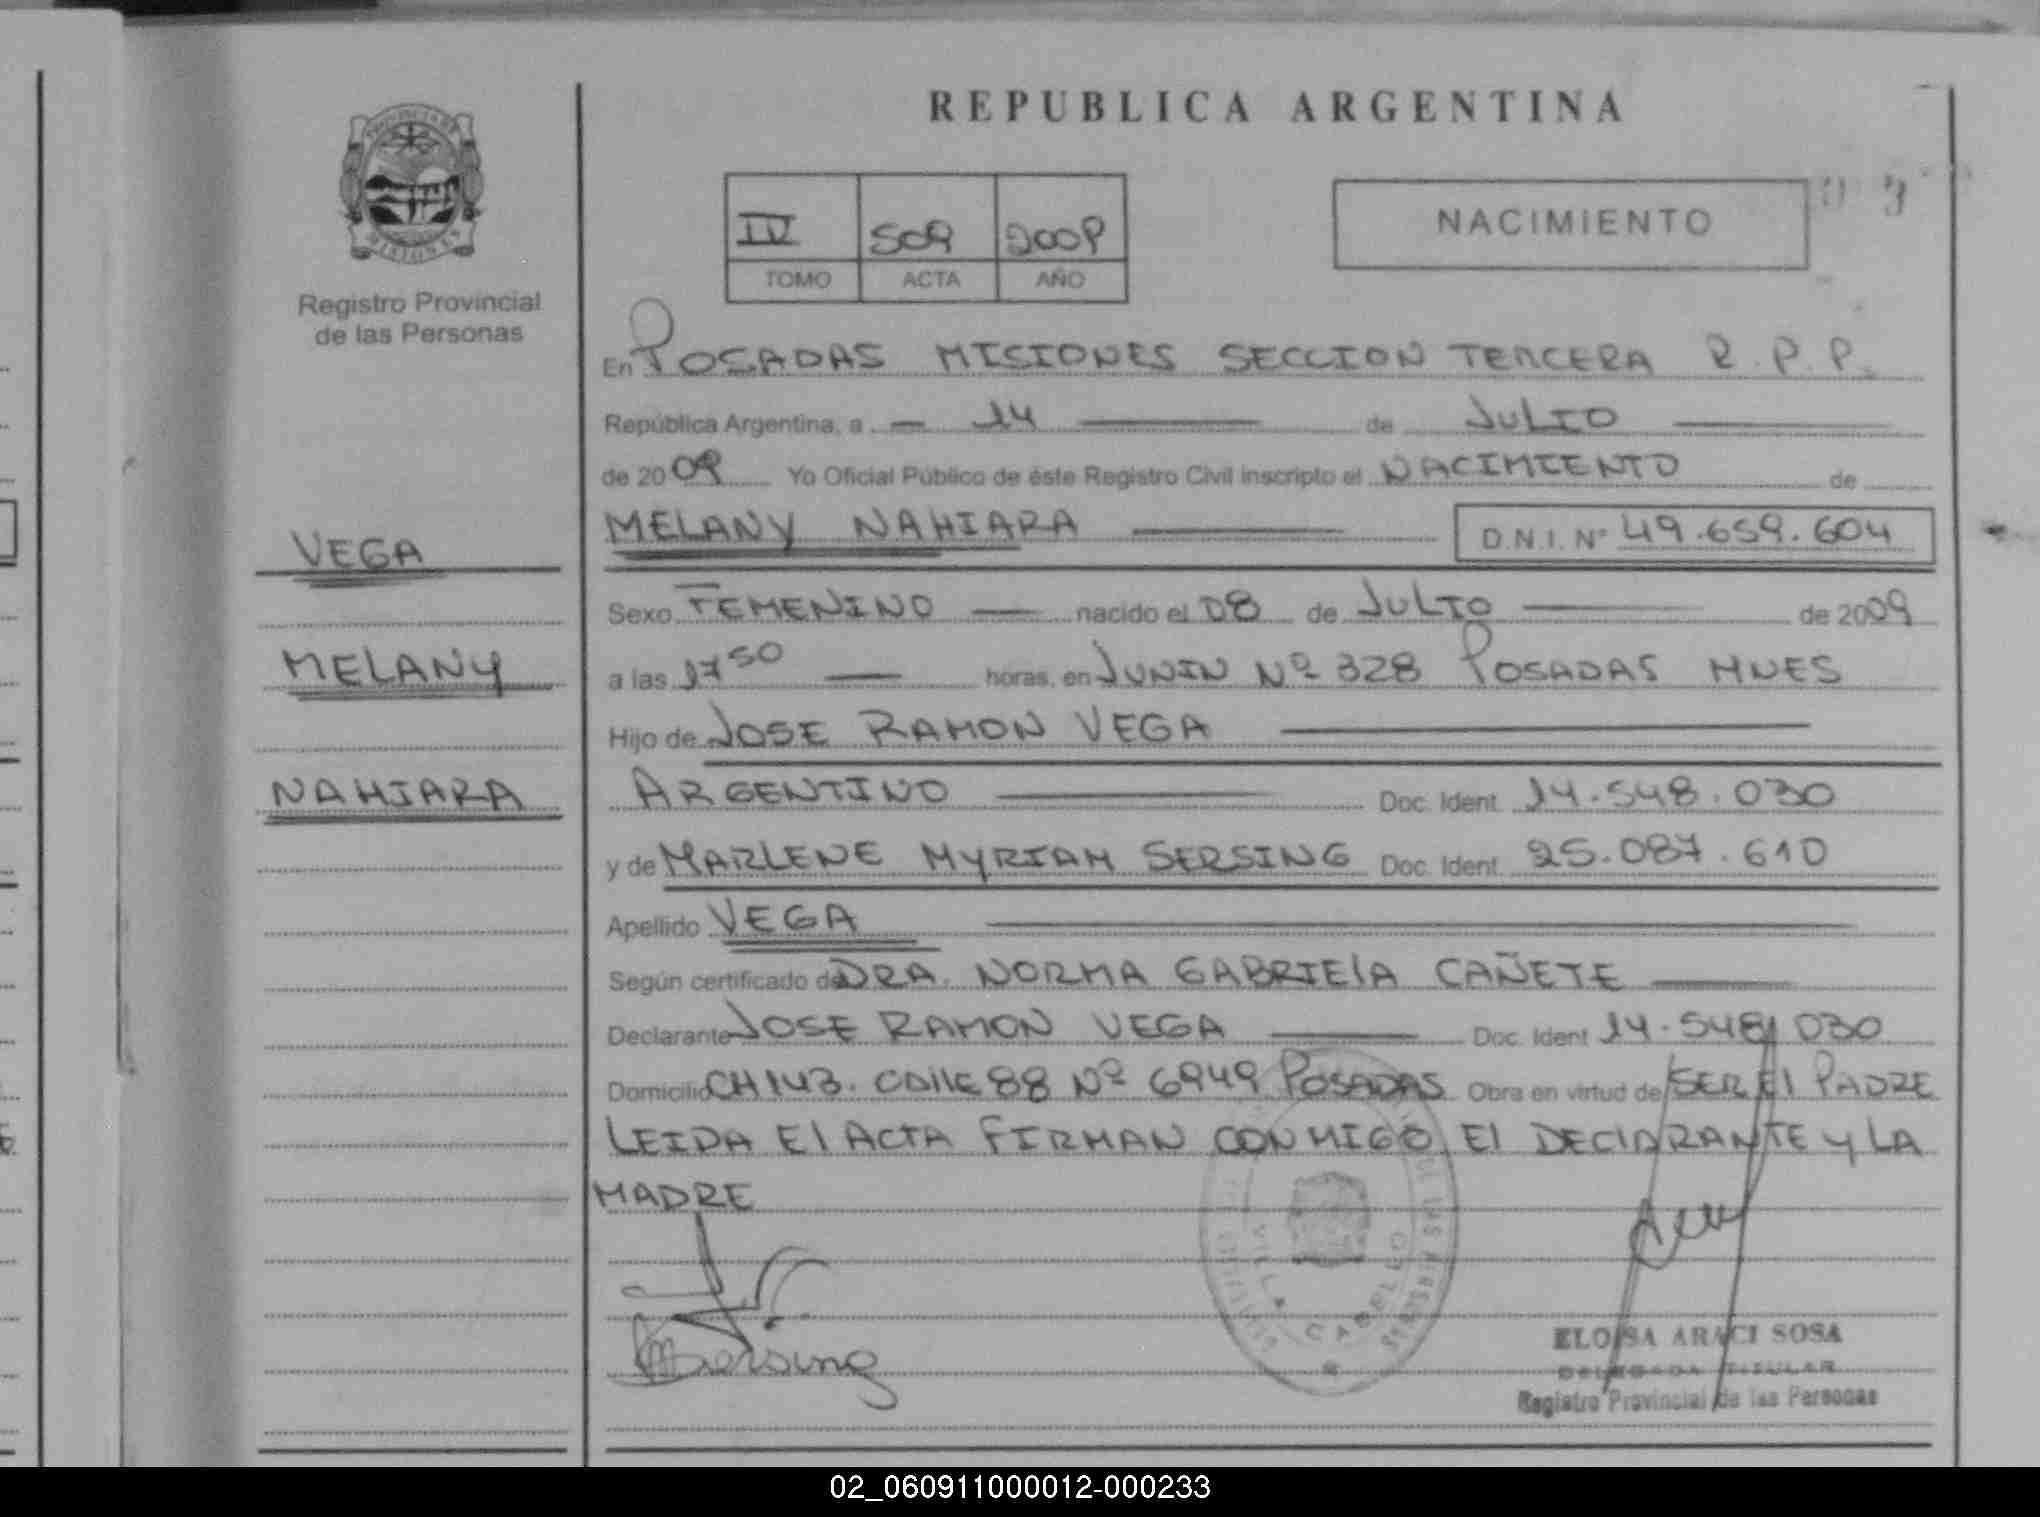 REPUBLICA ARGENTINA
PROVINCIA DE
MISIONES
Registro Provincial
de las Personas
IV 509 2009
TOMO ACTA AÑO
NACIMIENTO
En POSADAS MISIONES SECCION TERCERA R.P.P.
República Argentina, a 14 de JULIO
de 2009 Yo Oficial Público de éste Registro Civil inscripto el NACIMIENTO de
MELANY NAHIARA D.N.I. Nº 49.659.604
VEGA
MELANY
NAHIARA
Sexo FEMENINO nacido el 08 de JULIO de 2009
a las 17 50 horas, en JUNIN Nº 328 POSADAS MNES
Hijo de JOSE RAMON VEGA
ARGENTINO Doc. Ident. 14.548.030
y de MARLENE MYRIAM SERSING Doc. Ident. 25.087.610
Apellido VEGA
Según certificado de DRA. NORMA GABRIElA CAÑETE
Declarante JOSE RAMON VEGA Doc. Ident 14.548.030
Domicilio CH 143. CAllE 88 Nº 6949 POSADAS Obra en virtud de SER El PADRE
LEIDA El ACTA FIRMAN CONMIGO El DEClARANTE y LA
MADRE
MSersing
VILLA CABELLO
ELOISA ARACI SOSA
DELEGADA TITULAR
Registro Provincial de las Personas
02_060911000012-000233